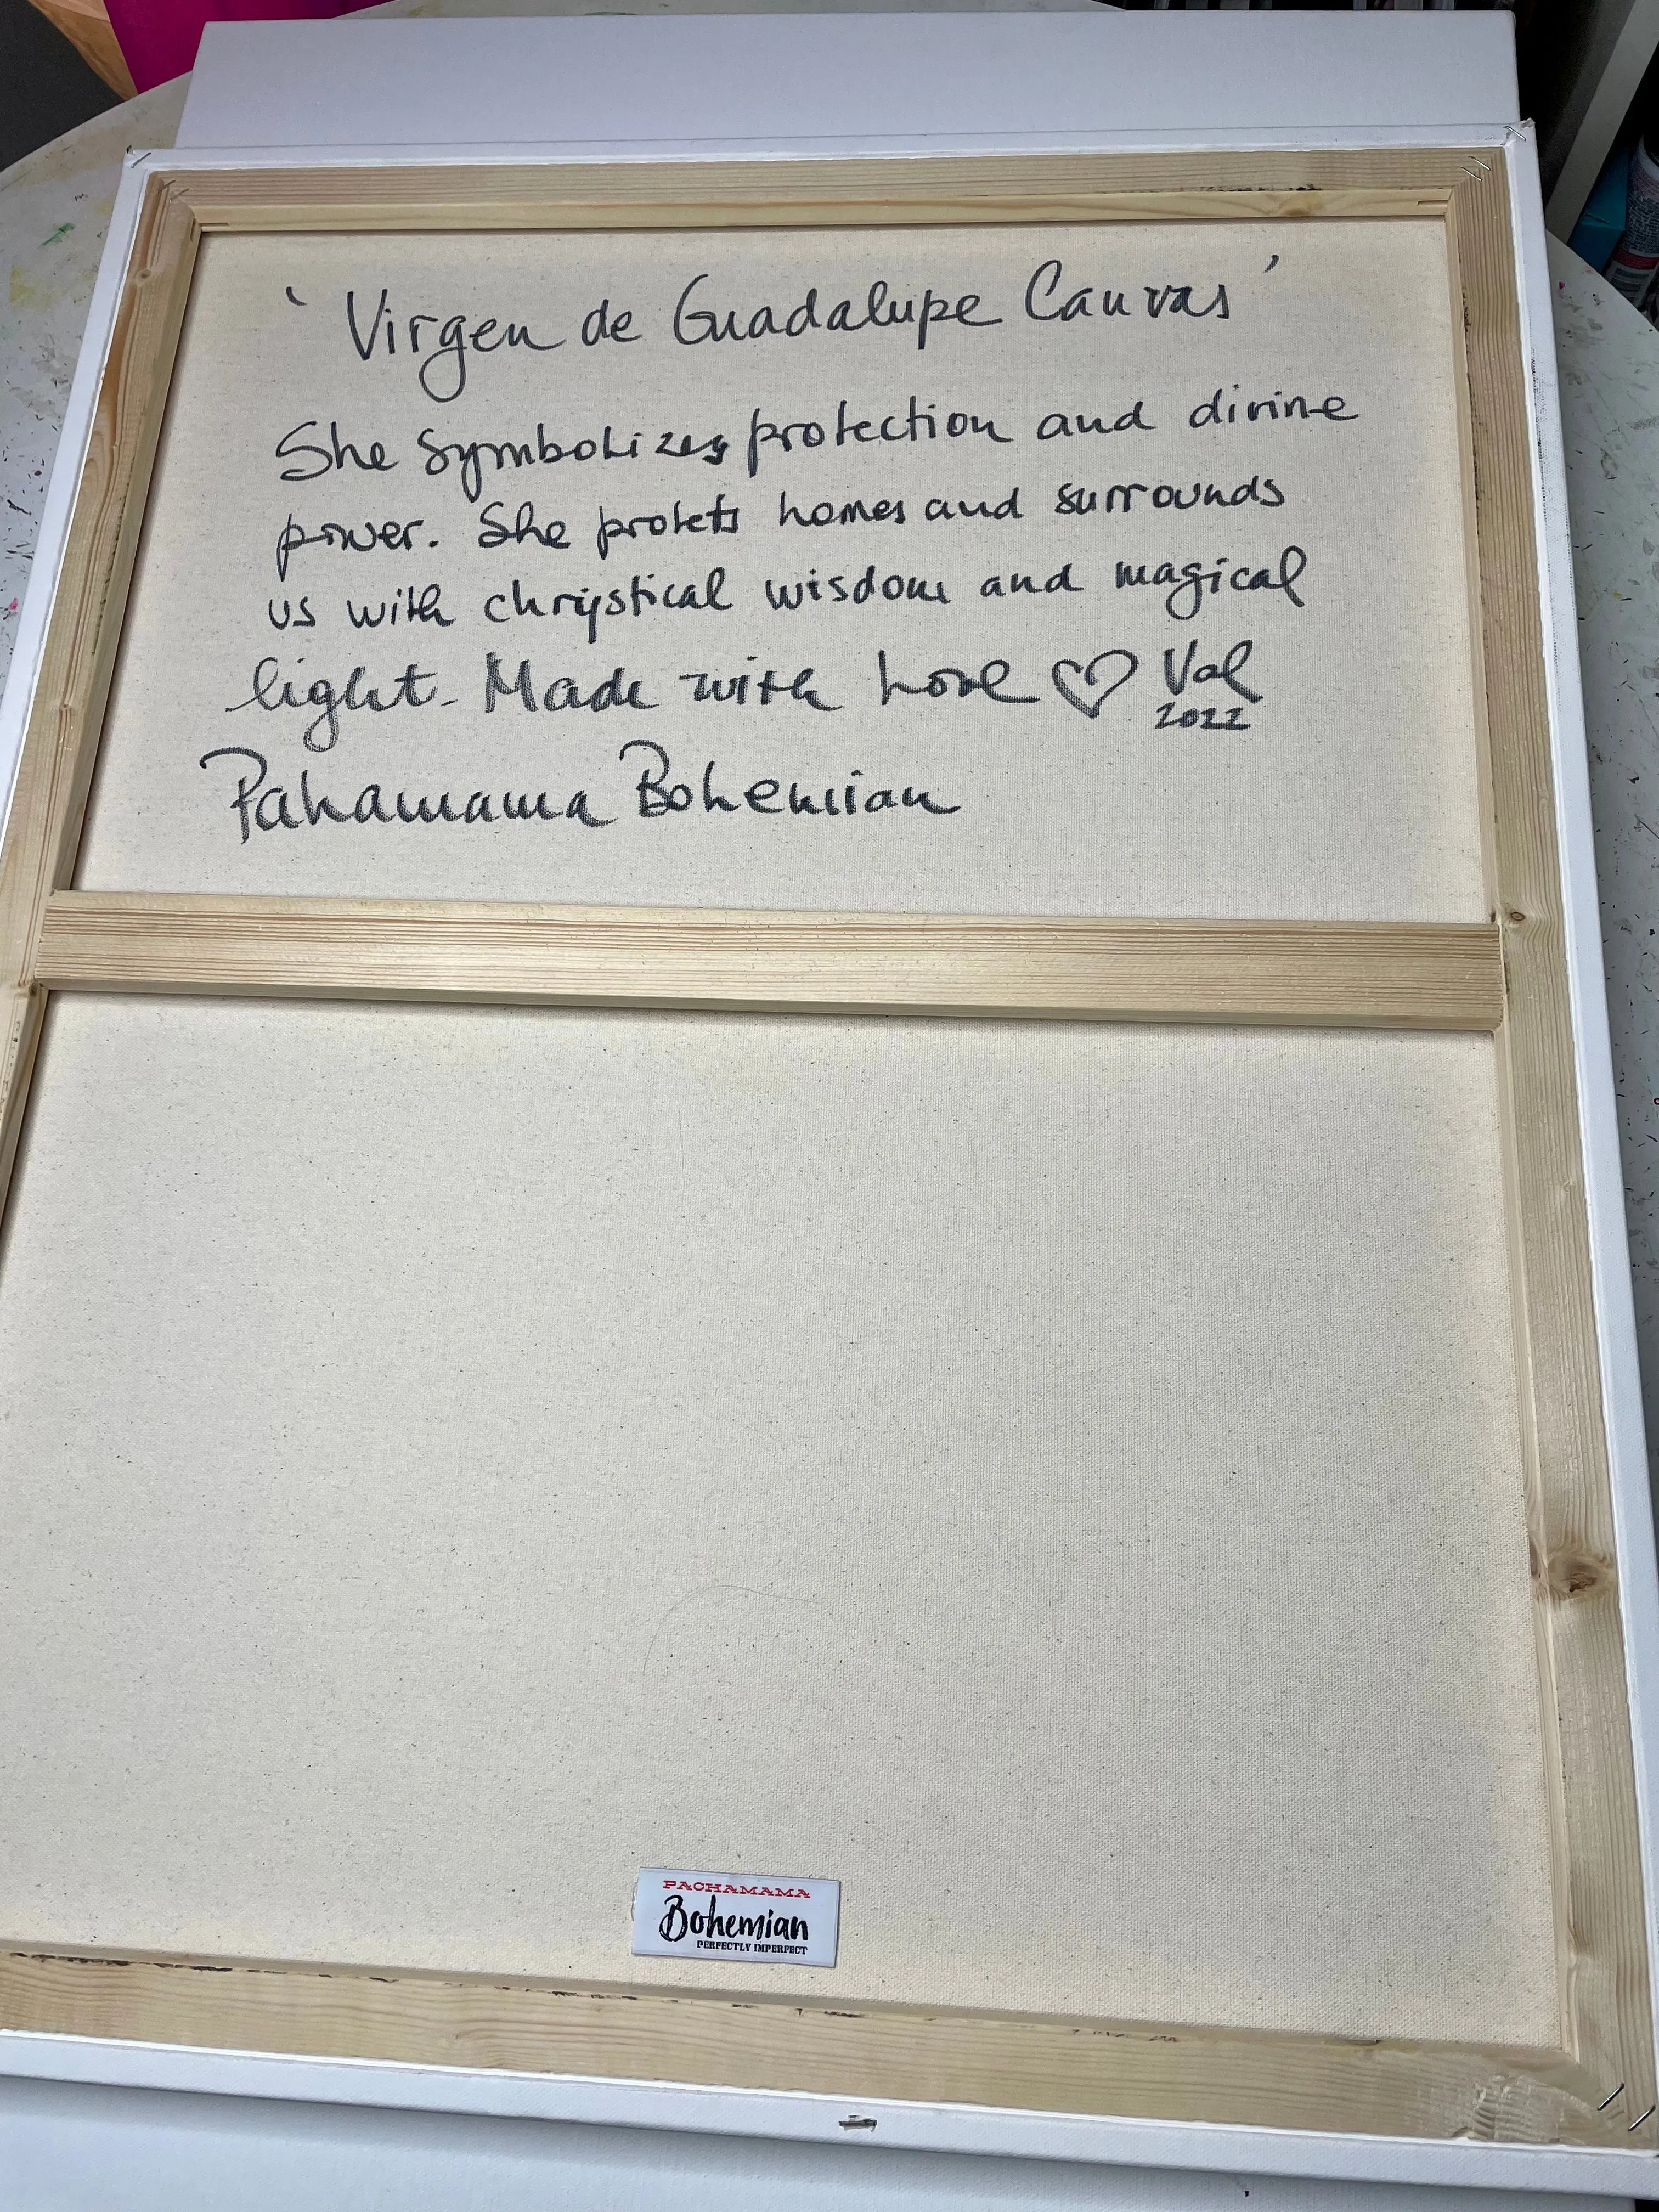 'Virgen de Guadalupe Canvas'
She symbolizes protection and divine
power. She protets homes and surrounds
us with chrystical wisdom and magical
light. Made with Love ♡ Val
2022
Pahamama Bohemian
PACHAMAMA
Bohemian
PERFECTLY IMPERFECT